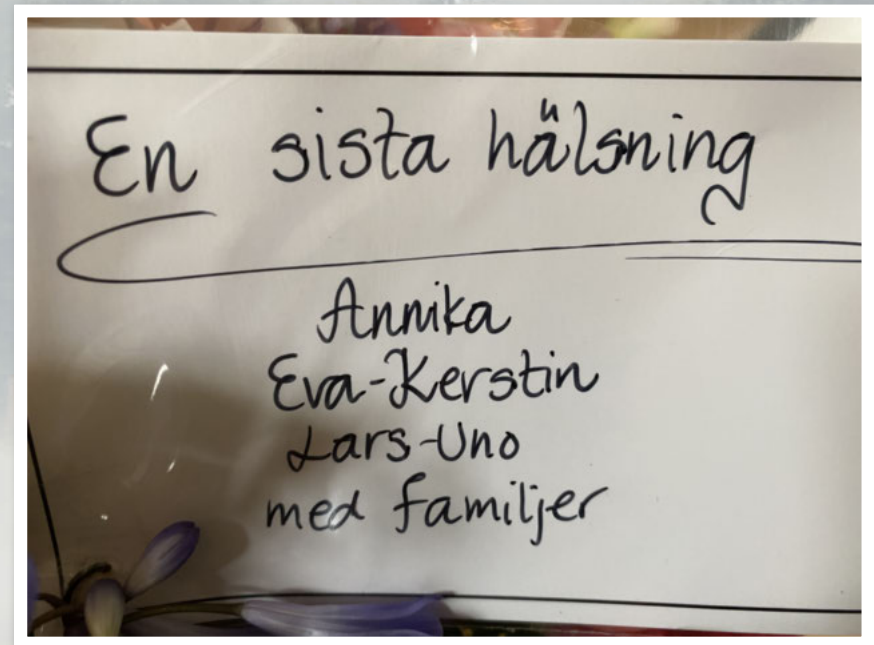 En sista hälsning
Annika
Eva-Kerstin
Lars-Uno
med familjer